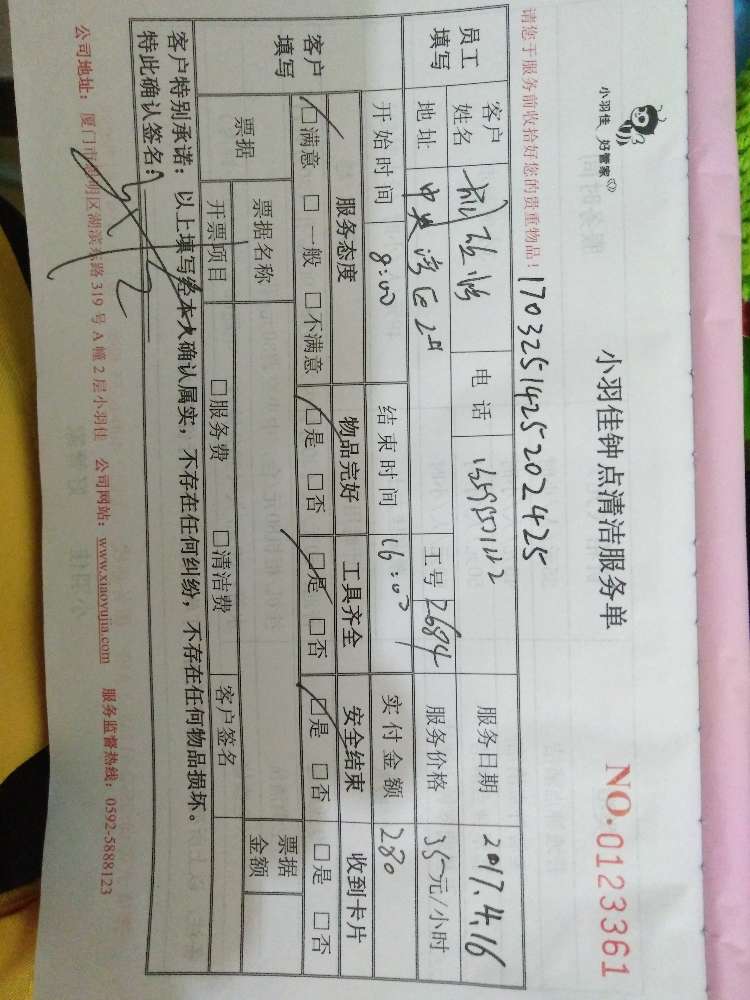 小羽佳 好管家
小羽佳钟点清洁服务单
NO.0123361
请您于服务前收拾好您的贵重物品！
1703251425202425
员工填写
客户姓名
电话
服务日期 2017.4.16
地址 中央湾区
工号 2684
服务价格 35元/小时
开始时间 8:00 结束时间 16:00 实付金额 280
客户填写
服务态度 物品完好 工具齐全 安全结束 收到卡片
□满意 □一般 □不满意 □是 □否 □是 □否 □是 □否 □是 □否
票据 票据名称 票据金额
开票项目 □服务费 □清洁费 客户签名
客户特别承诺：以上填写经本人确认属实，不存在任何纠纷，不存在任何物品损坏。
特此确认签名：
公司地址：厦门市思明区湖滨东路319号A幢2层小羽佳 公司网站：www.xiaoyujia.com 服务监督热线：0592-5888123